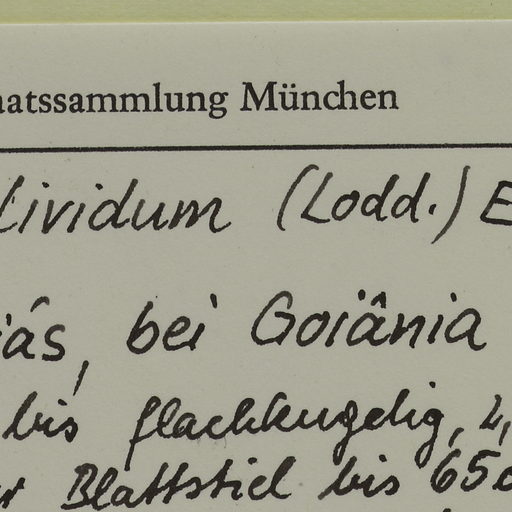 aatssammlung München
lividum (Lodd.) E
iás, bei Goiânia
bis flachkugelig, 4,
Blattstiel bis 65c